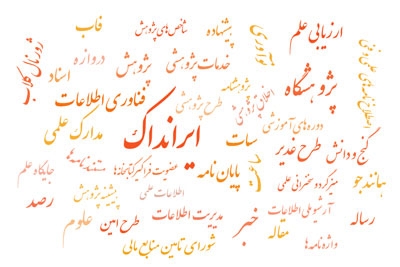 ارزیابی علم
پیشنهاده
شاخص‌های پژوهش
فاب
ژورنال کلاب
نوآوری
خدمات پژوهشی
پژوهش
دروازه
اسناد
پژوهشگاه
پژوهشنامه
فناوری اطلاعات
طرح پژوهشی
دوره‌های آموزشی
ایرانداک
مدارک علمی
سات
طرح غدیر
گنج و دانش
پایان نامه
عضویت فراگیر کتابخانه‌ها
جایگاه علم
همانندجو
میزگرد و سخنرانی علمی
اطلاعات علمی
پیشینه پژوهش
رصد
آرشیو ملی اطلاعات
مدیریت اطلاعات
رساله
مقاله
خبر
طرح امین
علوم
واژه نامه‌ها
شورای تامین منابع مالی